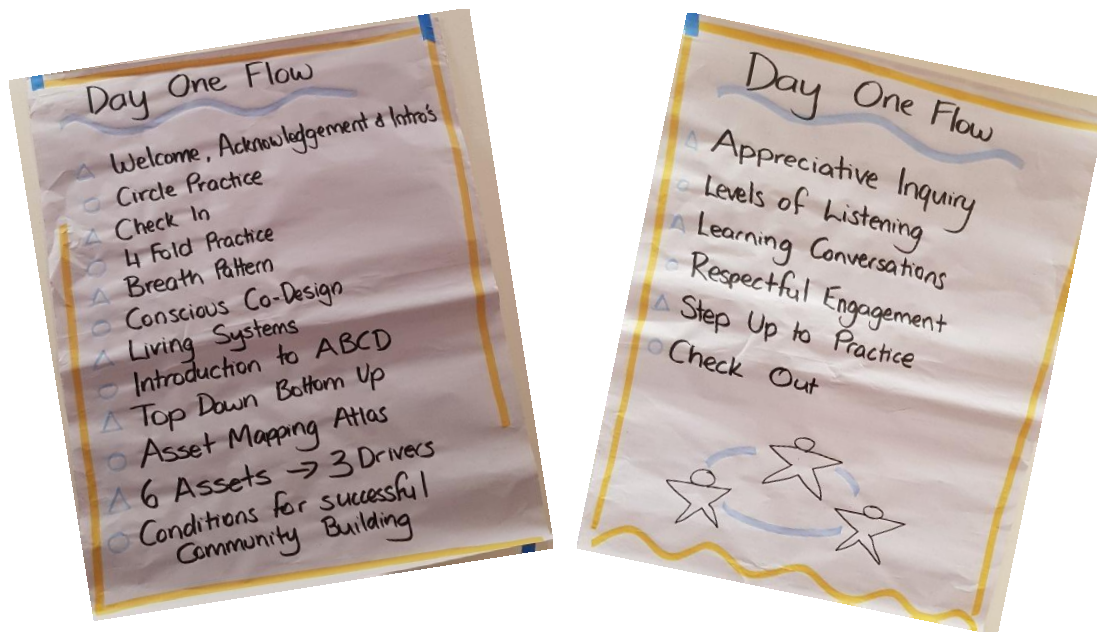 Day One Flow
Welcome, Acknowledgement & Intro's
Circle Practice
Check In
4 Fold Practice
Breath Pattern
Conscious Co-Design
Living Systems
Introduction to ABCD
Top Down Bottom Up
Asset Mapping Atlas
6 Assets → 3 Drivers
Conditions for successful
Community Building
Day One Flow
Appreciative Inquiry
Levels of Listening
Learning Conversations
Respectful Engagement
Step Up to Practice
Check Out